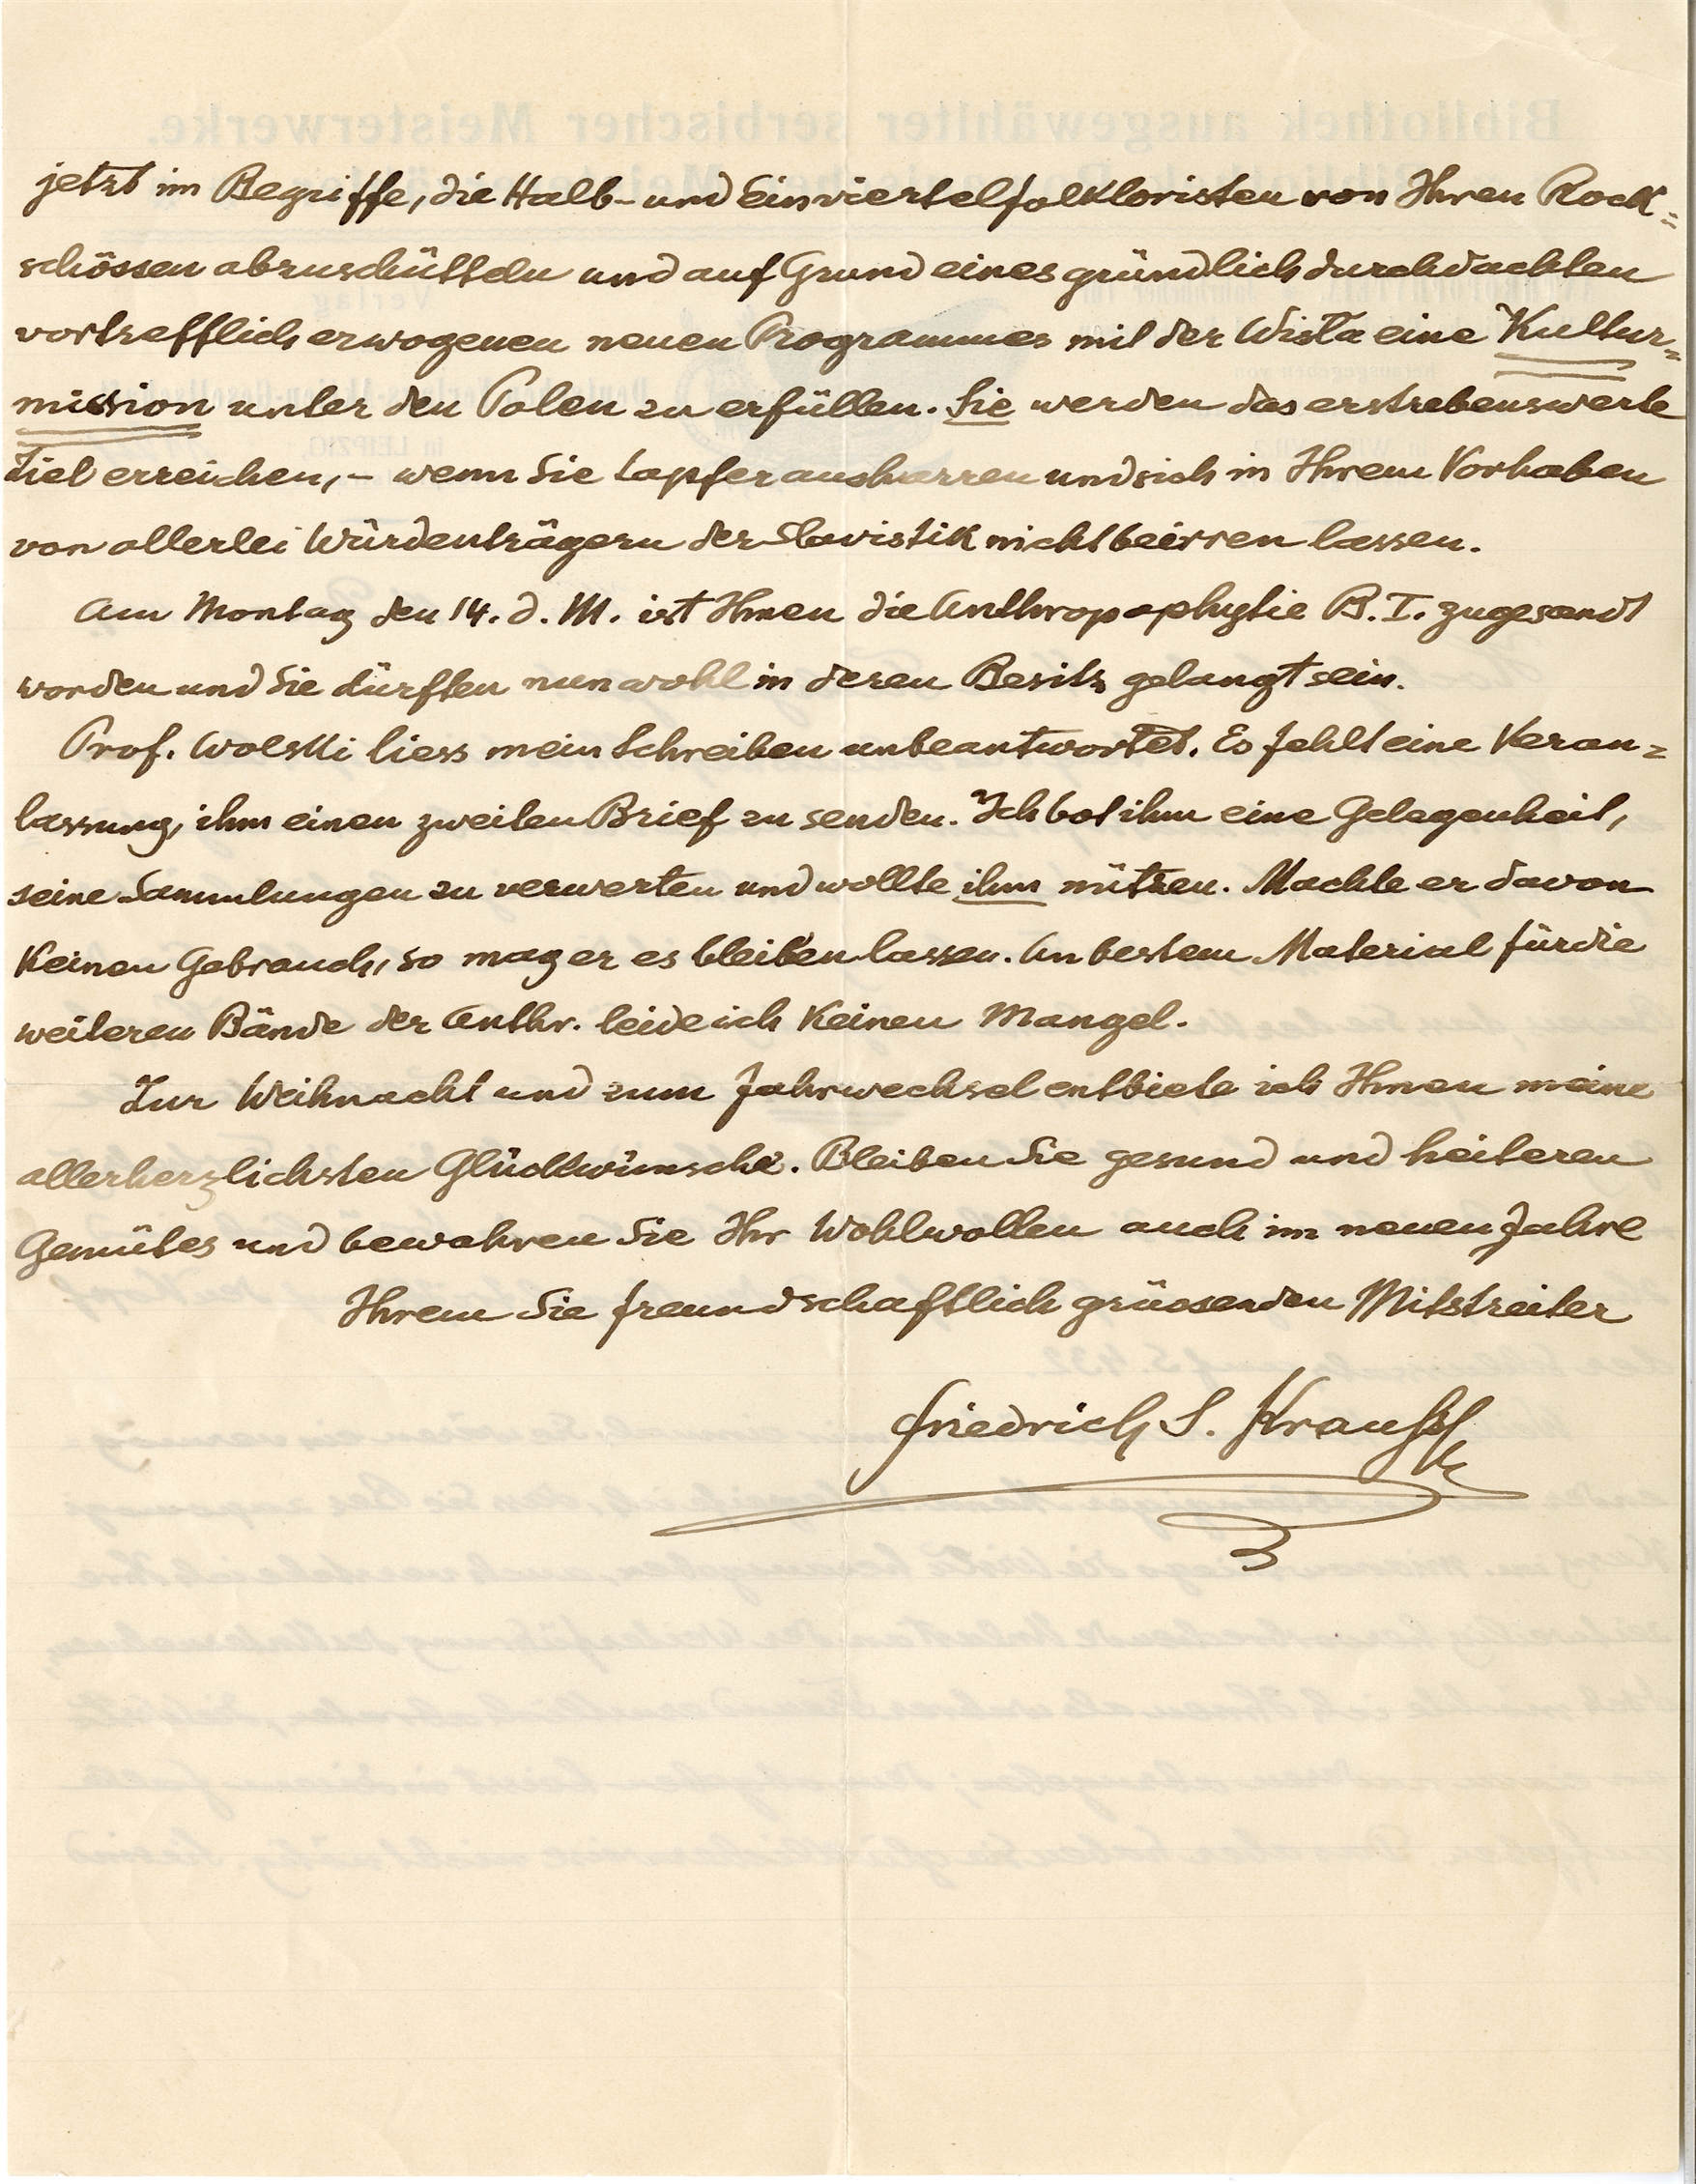 jetzt im Begriffe, die Halb- und Einviertelfolkloristen von Ihren Rock=
schössen abzuschütteln und auf Grund eines gründlich durchdachten
vortrefflich erwogenen neuen Programmes mit der Wisła eine Kultur=
mission unter den Polen zu erfüllen. Sie werden das erstrebenswerte
Ziel erreichen, – wenn Sie tapfer ausharren und sich in Ihrem Vorhaben
von allerlei Würdenträgern der Slavistik nicht beirren lassen.
Am Montag den 14. d. M. ist Ihnen die Anthropophytie B. I. zugesandt
worden und Sie dürften nun wohl in deren Besitz gelangt sein.
Prof. Wolski liess mein Schreiben unbeantwortet. Es fehlt eine Veran=
lassung, ihm einen zweiten Brief zu senden. Ich bot ihm eine Gelegenheit,
seine Sammlungen zu verwerten und wollte ihm nützen. Machte er davon
keinen Gebrauch, so mag er es bleiben lassen. An bestem Material für die
weiteren Bände der Anthr. leide ich keinen Mangel.
Zur Weihnacht und zum Jahrwechsel entbiete ich Ihnen meine
allerherzlichsten Glückwünsche. Bleiben Sie gesund und heiteren
Gemütes und bewahren Sie Ihr Wohlwollen auch im neuen Jahre
Ihrem Sie freundschaftlich grüssenden Mitstreiter
Friedrich S. Krauss